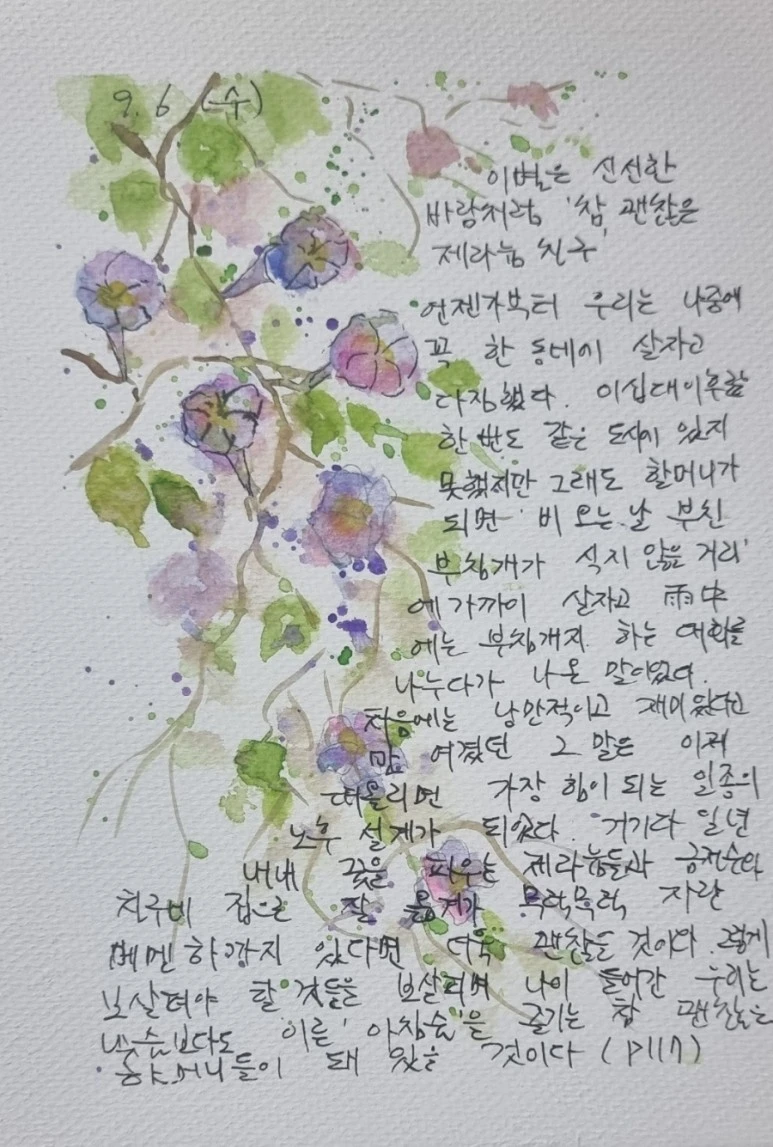 9. 6 (수)
이별은 신선한
바람처럼 '참 괜찮은
제라늄 친구'
언젠가부터 우리는 나중에
꼭 한 동네에 살자고
다짐했다. 이십대이후함
한번도 같은 도시에 있지
못했지만 그래도 할머니가
되면 '비 오는 날 부친
부침개가 식지 않을 거리'
에 가까이 살자고 雨中
에는 부침개지 하는 대화를
나누다가 나온 말이었다.
처음에는 낭만적이고 재미있다고
만 여겼던 그 말은 이제
떠올리면 가장 힘이 되는 일종의
노후 설계가 되었다. 거기다 일년
내내 꽃을 피우는 제라늄들과 금전수와
친구비 집으로 잘 옮겨가 무럭무럭 자란
벤자민 하까지 있다면 더욱 괜찮을 것이다. 그렇게
보살펴야 할 것들을 보살피며 나이 들어간 우리는
모습보다도 이른 '아침숲'을 즐기는 참 괜찮은
할머니들이 돼 있을 것이다 (P117)